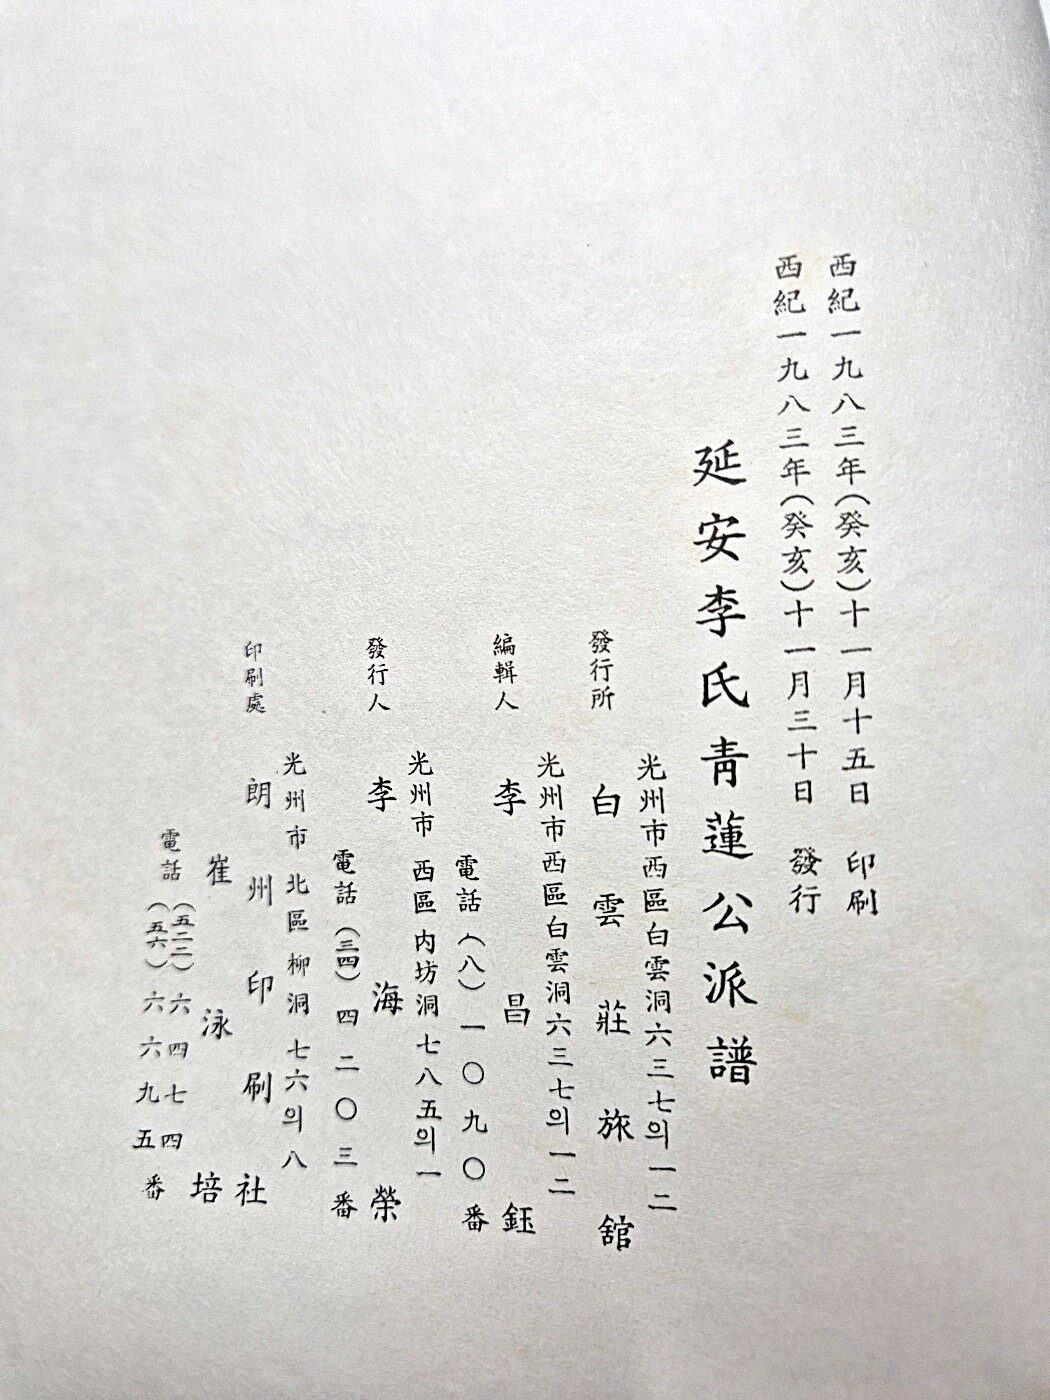 西紀一九八三年(癸亥)十一月十五日 印刷
西紀一九八三年(癸亥)十一月三十日 發行
延安李氏靑蓮公派譜
光州市西區白雲洞六三七의一二
發行所 白雲莊旅舘
光州市西區白雲洞六三七의一二
編輯人 李昌鈺
電話(八)一〇九〇番
光州市 西區 内坊洞 七八五의一
發行人 李海榮
電話(三四)四二〇三番
光州市 北區 柳洞 七六의八
印刷處 朗州印刷社
崔泳培
電話 (五二二)六四七四
(五六)六六九五番